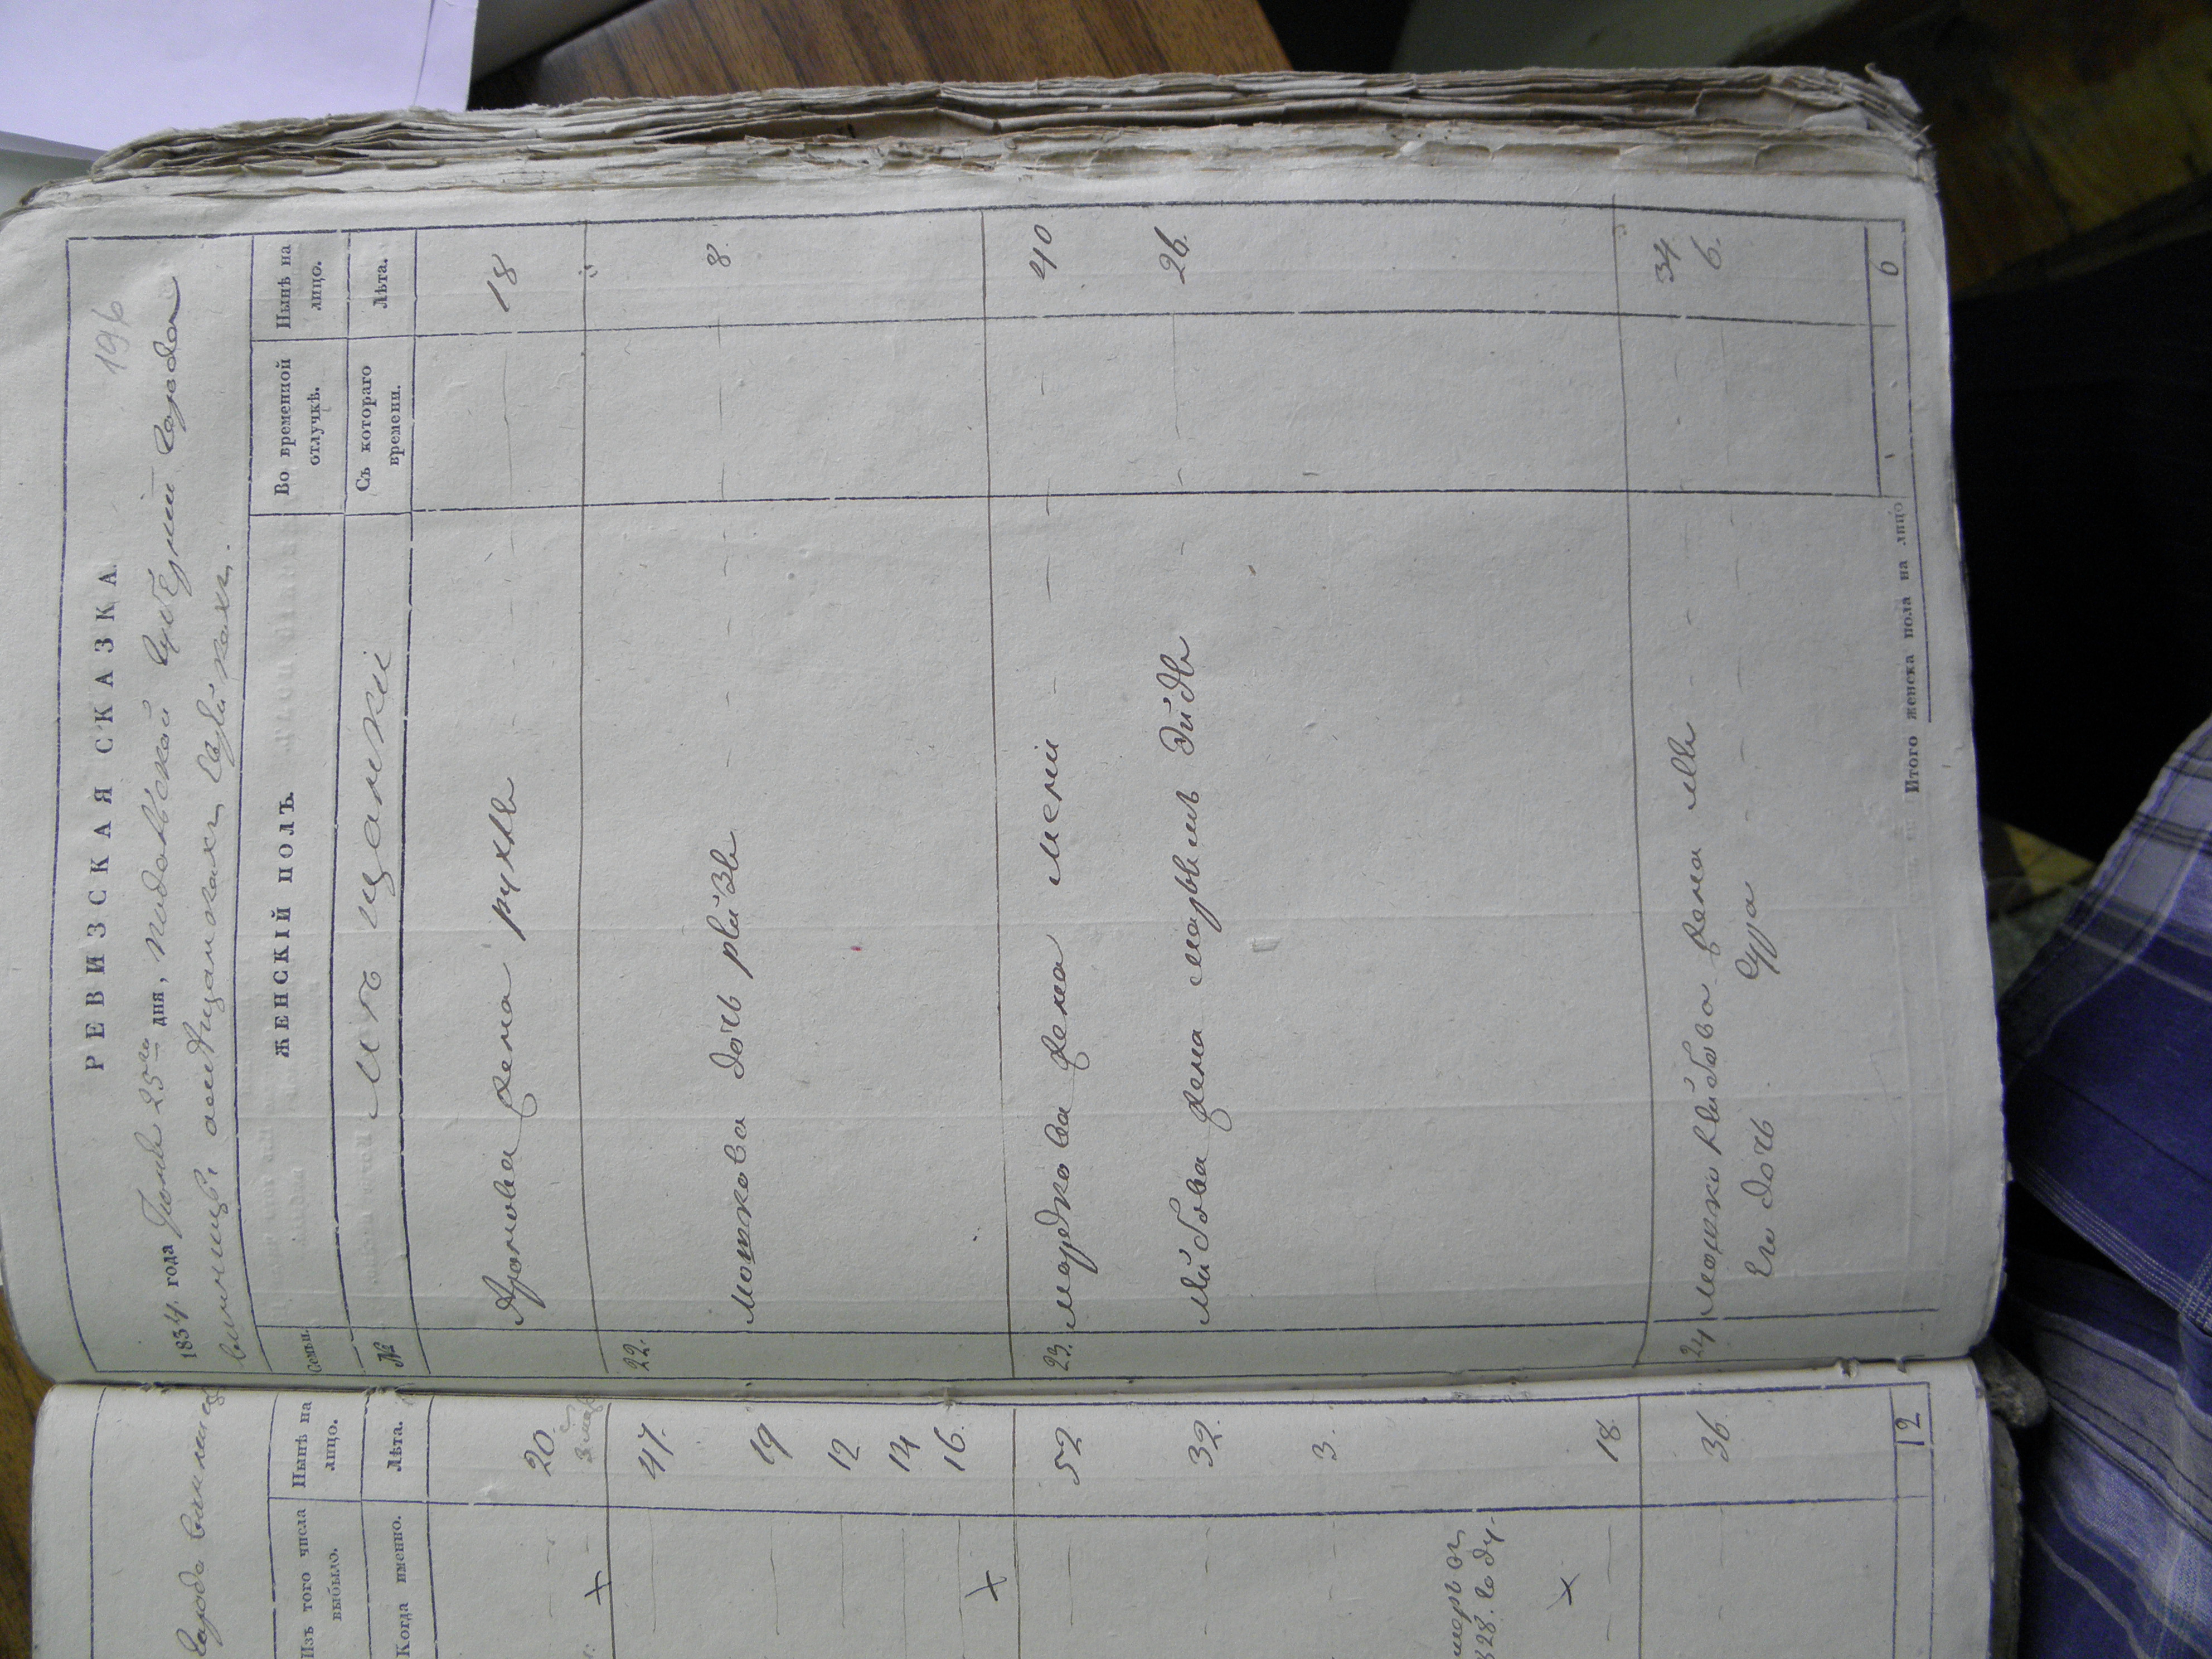 Города Винницы
Изъ того числа выбыло.
Нынѣ на лицо.
Когда именно.
Лѣта.
20.
47.
19
12
14
16.
52
32.
3.
828. го
18.
36.
12
196
РЕВИЗСКАЯ СКАЗКА
1834. года Іюня 25го дня, Подольской Губерніи Города
Винницы,
ЖЕНСКІЙ ПОЛЪ.
Во временной отлучкѣ.
Нынѣ на лицо.
Семьи.
№
Мѣщанки
Съ котораго времени.
Лѣта.
Аронова жена рухля 18
22.
Мошкова дочь рейзя 8.
23. Мордкова жена Мени 40
Лейбова жена Марьемъ Эйдя 26.
24 Мошки Лейбова жена 34
Его дочь Сура 6.
Итого женска пола на лицо 6